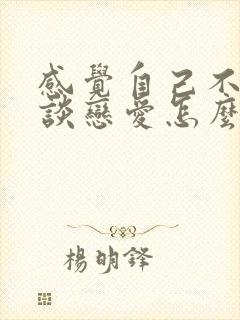 感覺自己不
談戀愛怎麼
楊明鋒